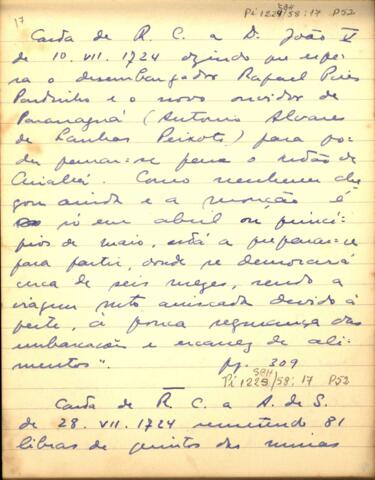 17
SBH
Pi 1229/58:17 P52
Carta de R. C. a D. João V
de 10. VII. 1724 dizendo que espe-
ra o desembargador Rafael Pires
Pardinho e o novo ouvidor de
Paranaguá (Antonio Alvares
de Lanhas Peixoto) para po-
der passar-se para o sertão de
Cuiabá. Como nenhum che
gou ainda e a monção é
só em abril ou princi-
pios de maio, está a preparar-se
para partir, donde se demorará
cerca de seis mezes, sendo a
viagem mto arriscada devido á
peste, á pouca segurança das
embarcações e escassez de ali-
mentos".
pg. 309
SBH
Pi 1229/58:17 P52
Carta de R. C. a A. de S.
de 28. VII. 1724 remetendo 81
libras de quintos das minas